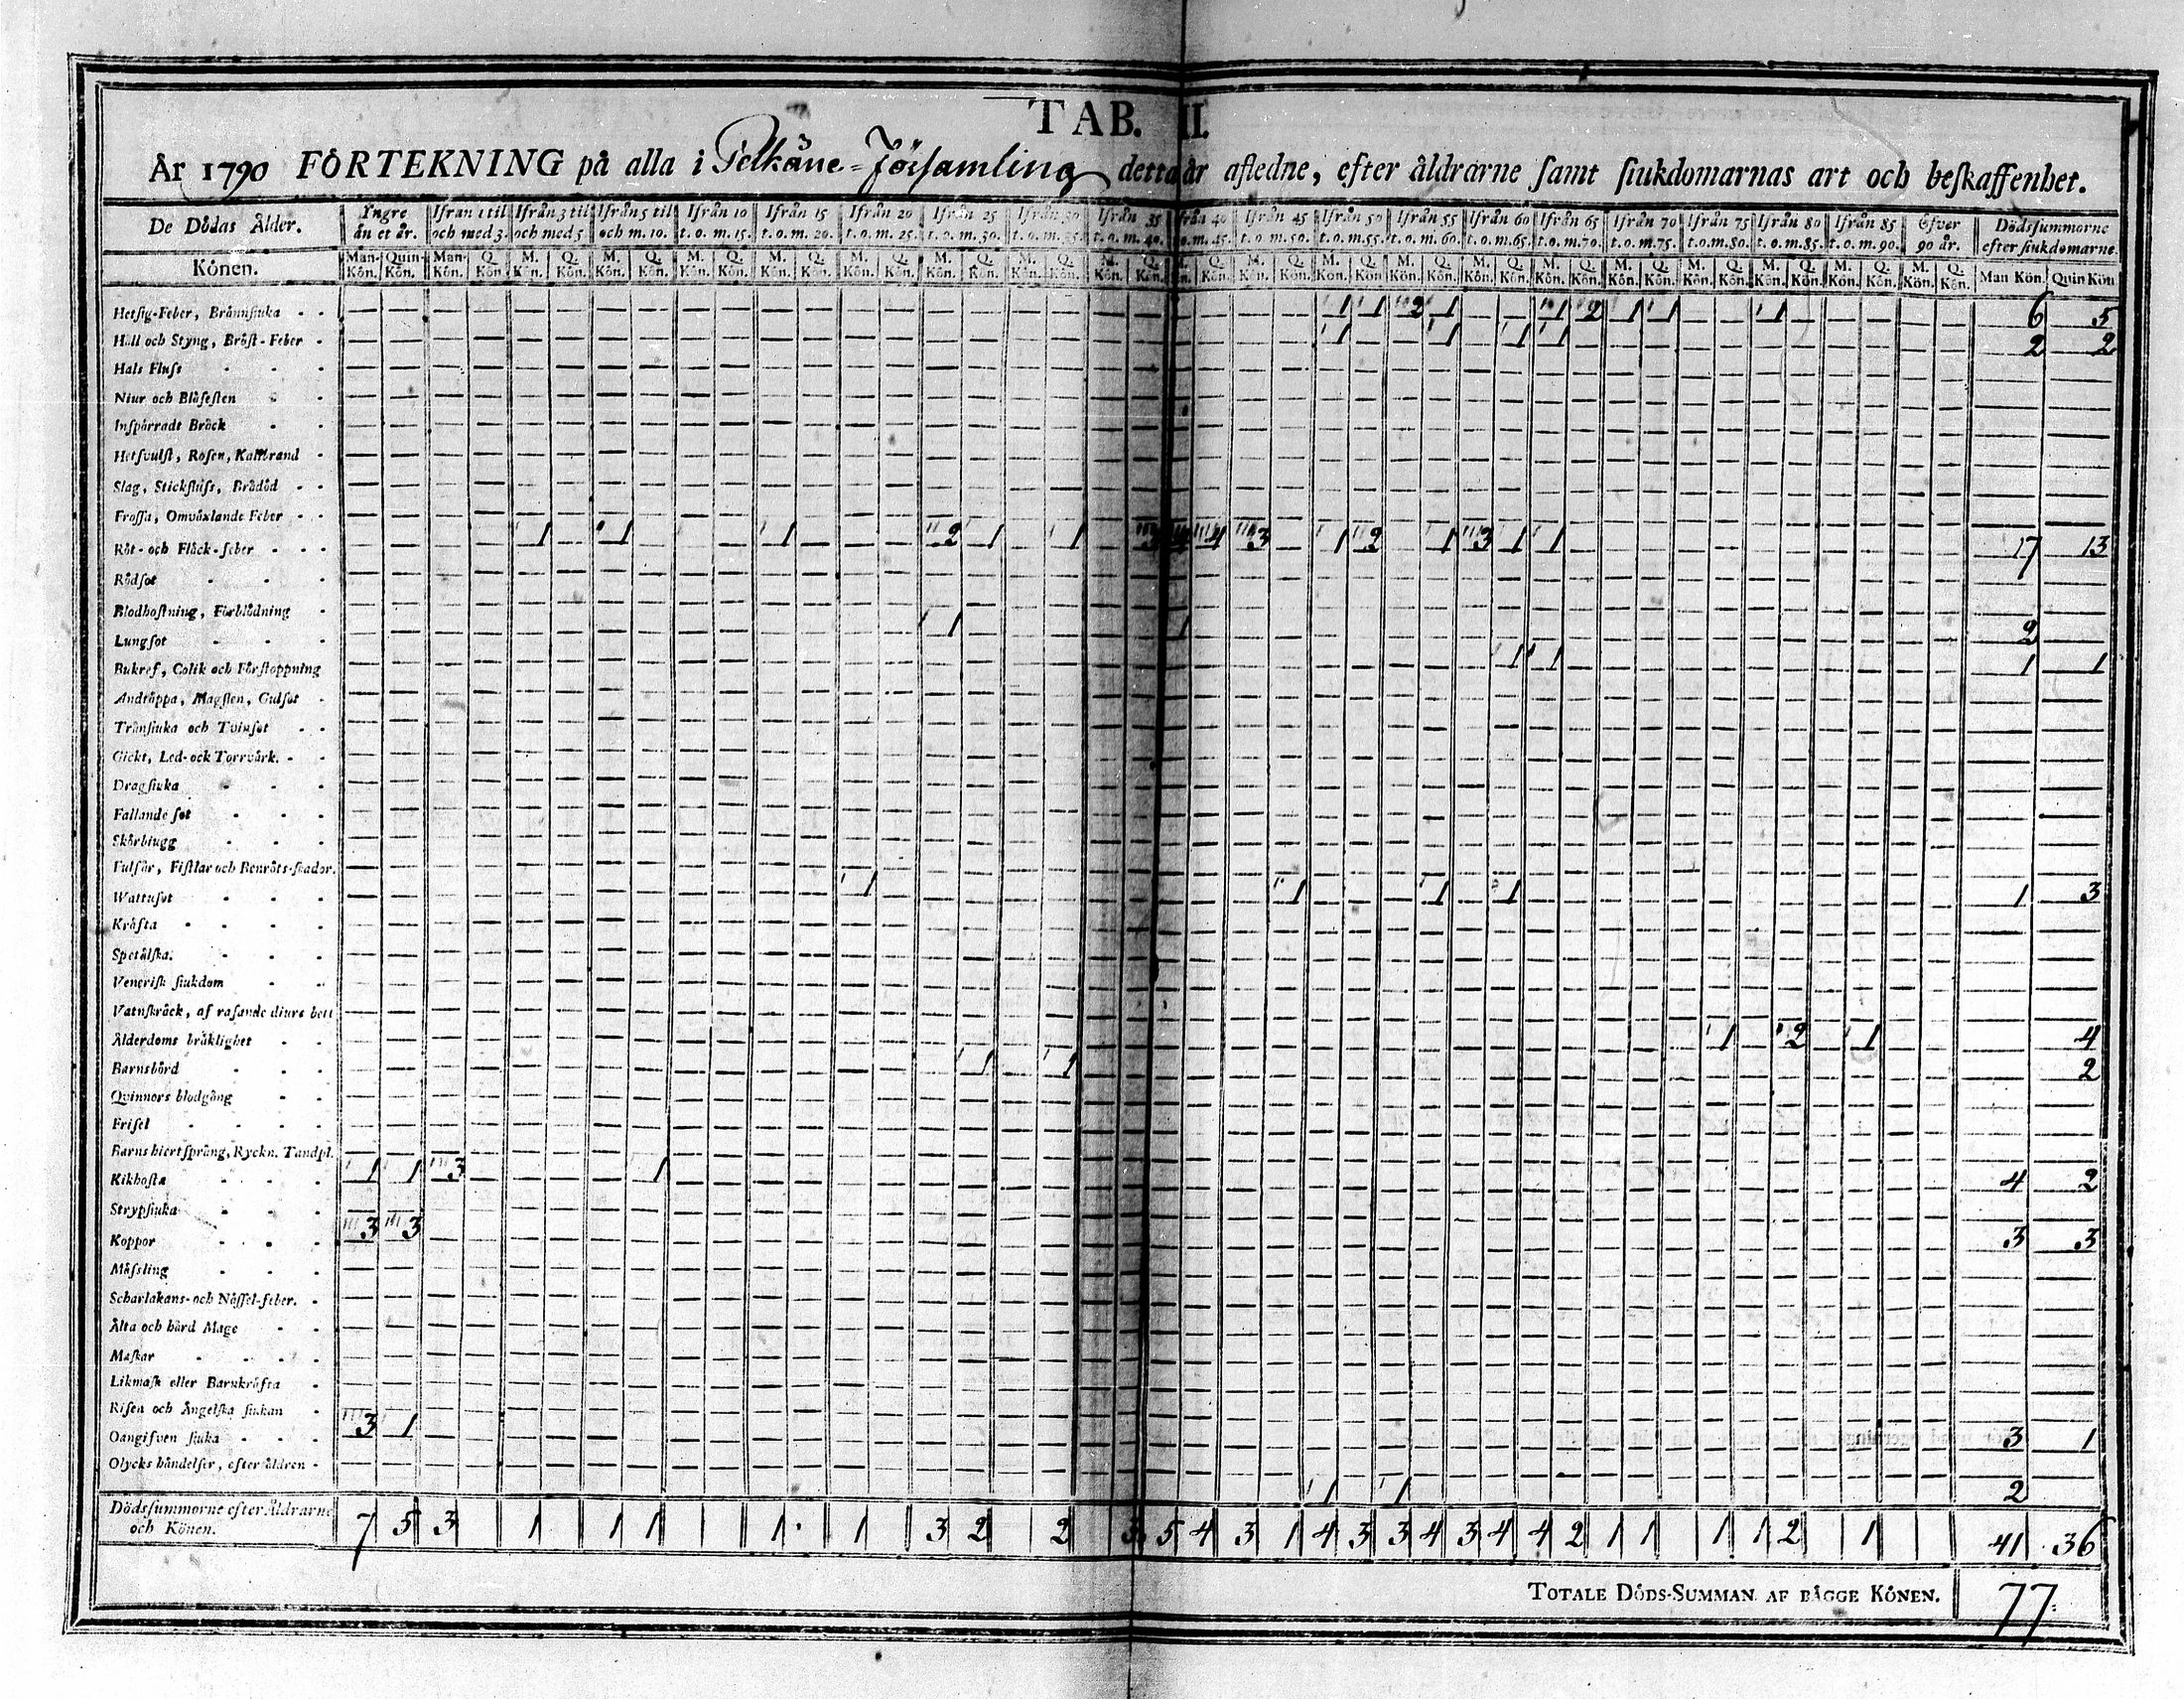 TAB. II.
År 1790 FÖRTEKNING på alla i Pelkäne Församling detta år afledne, efter åldrarne samt siukdomarnas art och beskaffenhet.
De Dödas Ålder. Yngre än et år. Ifrån 1 til och med 3. Ifrån 3 til och med 5 Ifrån 5 til och m. 10. Ifrån 10 t. o. m. 15. Ifrån 15 t. o. m. 20. Ifrån 20 t. o. m. 25. Ifrån 25 t. o. m. 30. Ifrån 30 t. o. m. 35. Ifrån 35 t. o. m. 40. Ifrån 40 t. o. m. 45. Ifrån 45 t. o. m. 50. Ifrån 50 t. o. m. 55. Ifrån 55 t. o. m. 60. Ifrån 60 t. o. m. 65. Ifrån 65 t. o. m. 70. Ifrån 70 t. o. m. 75. Ifrån 75 t. o. m. 80. Ifrån 80 t. o. m. 85. Ifrån 85 t. o. m. 90. Öfver 90 år. Dödssummorne efter siukdomarne.
Könen. Man-Kön. Quin-Kön. Man-Kön. Q. Kön. M. Kön. Q. Kön. M. Kön. Q. Kön. M. Kön. Q. Kön. M. Kön. Q. Kön. M. Kön. Q. Kön. M. Kön. Q. Kön. M. Kön. Q. Kön. M. Kön. Q. Kön. M. Kön. Q. Kön. M. Kön. Q. Kön. M. Kön. Q. Kön. M. Kön. Q. Kön. M. Kön. Q. Kön. M. Kön. Q. Kön. M. Kön. Q. Kön. M. Kön. Q. Kön. M. Kön. Q. Kön. M. Kön. Q. Kön. M. Kön. Q. Kön. Man Kön. Quin Kön
Hetsig-Feber, Brännsiuka - - 1 1 2 1 1 2 1 1 1 6 5
Håll och Styng, Bröst-Feber - 1 1 1 1 2 2
Hals Fluss - - -
Niur och Blåsesten - -
Inspärradt Bråck - -
Hetsvulst, Rosen, Kallbrand -
Slag, Stickfluss, Brådöd - -
Frossa, Omväxlande Feber - -
Röt- och Fläck-feber - - - 1 1 1 2 1 1 3 4 4 3 1 2 1 3 1 1 17 13
Rödsot - - -
Blodhostning, Förblödning -
Lungsot - - - 1 1 2
Bukref, Colik och Förstoppning 1 1 1 1
Andtäppa, Magsten, Gulsot -
Tränsiuka och Tvinsot - -
Gickt, Led- och Torrvärk. - -
Dragsiuka - - -
Fallande sot - - -
Skörbiugg - - -
Fulsår, Fistlar och Benröts-skador.
Wattusot - - - 1 1 1 1 1 3
Kräfta - - - -
Spetälska. - - -
Venerisk siukdom - -
Vatnskräck, af rasande diurs bett
Ålderdoms bräklighet - - 1 2 1 4
Barnsbörd - - - 1 1 2
Qvinnors blodgång - -
Frisel - - - -
Barns hiertspräng, Ryckn. Tandpl.
Kikhosta - - - 1 1 3 1 4 2
Strypsiuka - - -
Koppor - - - 3 3 3 3
Mässling - - -
Scharlakans- och Nässel-feber. -
Ålta och hård Mage - -
Maskar - - - -
Likmask eller Barnkräfta -
Risen och Ängelska siukan -
Oangifven siuka - - - 3 1 3 1
Olycks händelser, efter åldren - 1 1 2
Dödssummorne efter Åldrarne och Könen. 7 5 3 1 1 1 1 1 3 2 2 3 5 4 3 1 4 3 3 4 3 4 4 2 1 1 1 1 2 1 41 36
TOTALE DÖDS-SUMMAN AF BÄGGE KÖNEN. 77